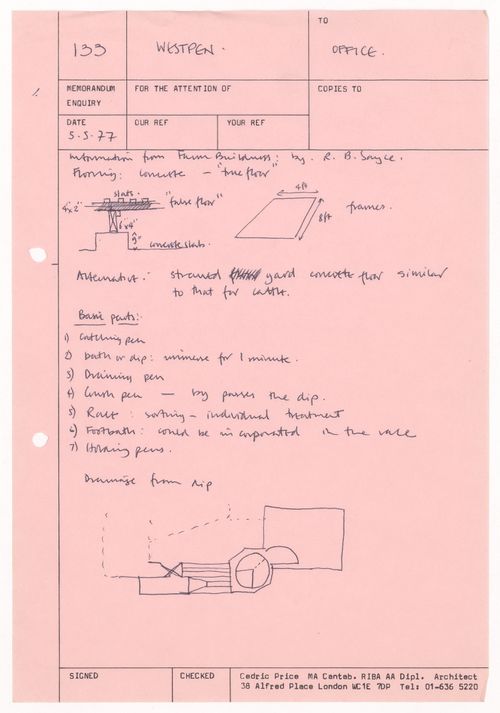 133 WESTPEN.
TO
OFFICE.
MEMORANDUM
ENQUIRY
FOR THE ATTENTION OF
COPIES TO
DATE
5.5.77
OUR REF
YOUR REF
Information from Farm Buildings: by. R. B. Sayce.
Flooring: concrete - "true floor"
slats.
4"x 2"
"false floor"
6"x4"
9"
concrete slab.
4ft
8ft
frames.
Alternative: strawed yard concrete floor similar
to that for cattle.
Basic parts:
1) Catching pen
2) bath or dip: immerse for 1 minute.
3) Draining pen
4) Crush pen — by passes the dip.
5) Race : sorting - individual treatment
6) Footbath: could be incorporated in the race
7) Holding pens.
Drainage from dip
SIGNED
CHECKED
Cedric Price MA Cantab. RIBA AA Dipl. Architect
38 Alfred Place London WC1E 7DP Tel: 01-636 5220